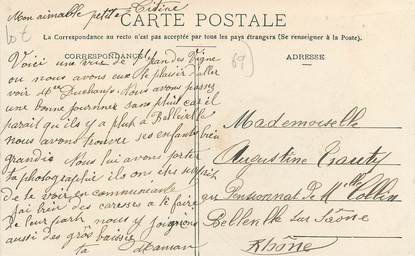 Mon aimable petite Titine
CARTE POSTALE
La Correspondance au recto n'est pas acceptée par tous les pays étrangers (Se renseigner à la Poste).
CORRESPONDANCE
ADRESSE
69
Voici une vue de Vigne
ou nous avons eus le plaisir d'aller
voir Duchamp. Nous avons passez
une bonne journnée sans pluit car il
parait qu'ils y a plut à Belleville
nous avons trouvé ses enfants bien
grandie Nous lui avons porter
ta photographie ils ons étés
de te voir en communiante
j'ai bien des careses a te faire
de leur part nous y joignons
aussi des gros baisers
ta Maman
Mademoiselle
Augustine
Pensionnat de Mlle Collin
Belleville sur Saône
Rhône